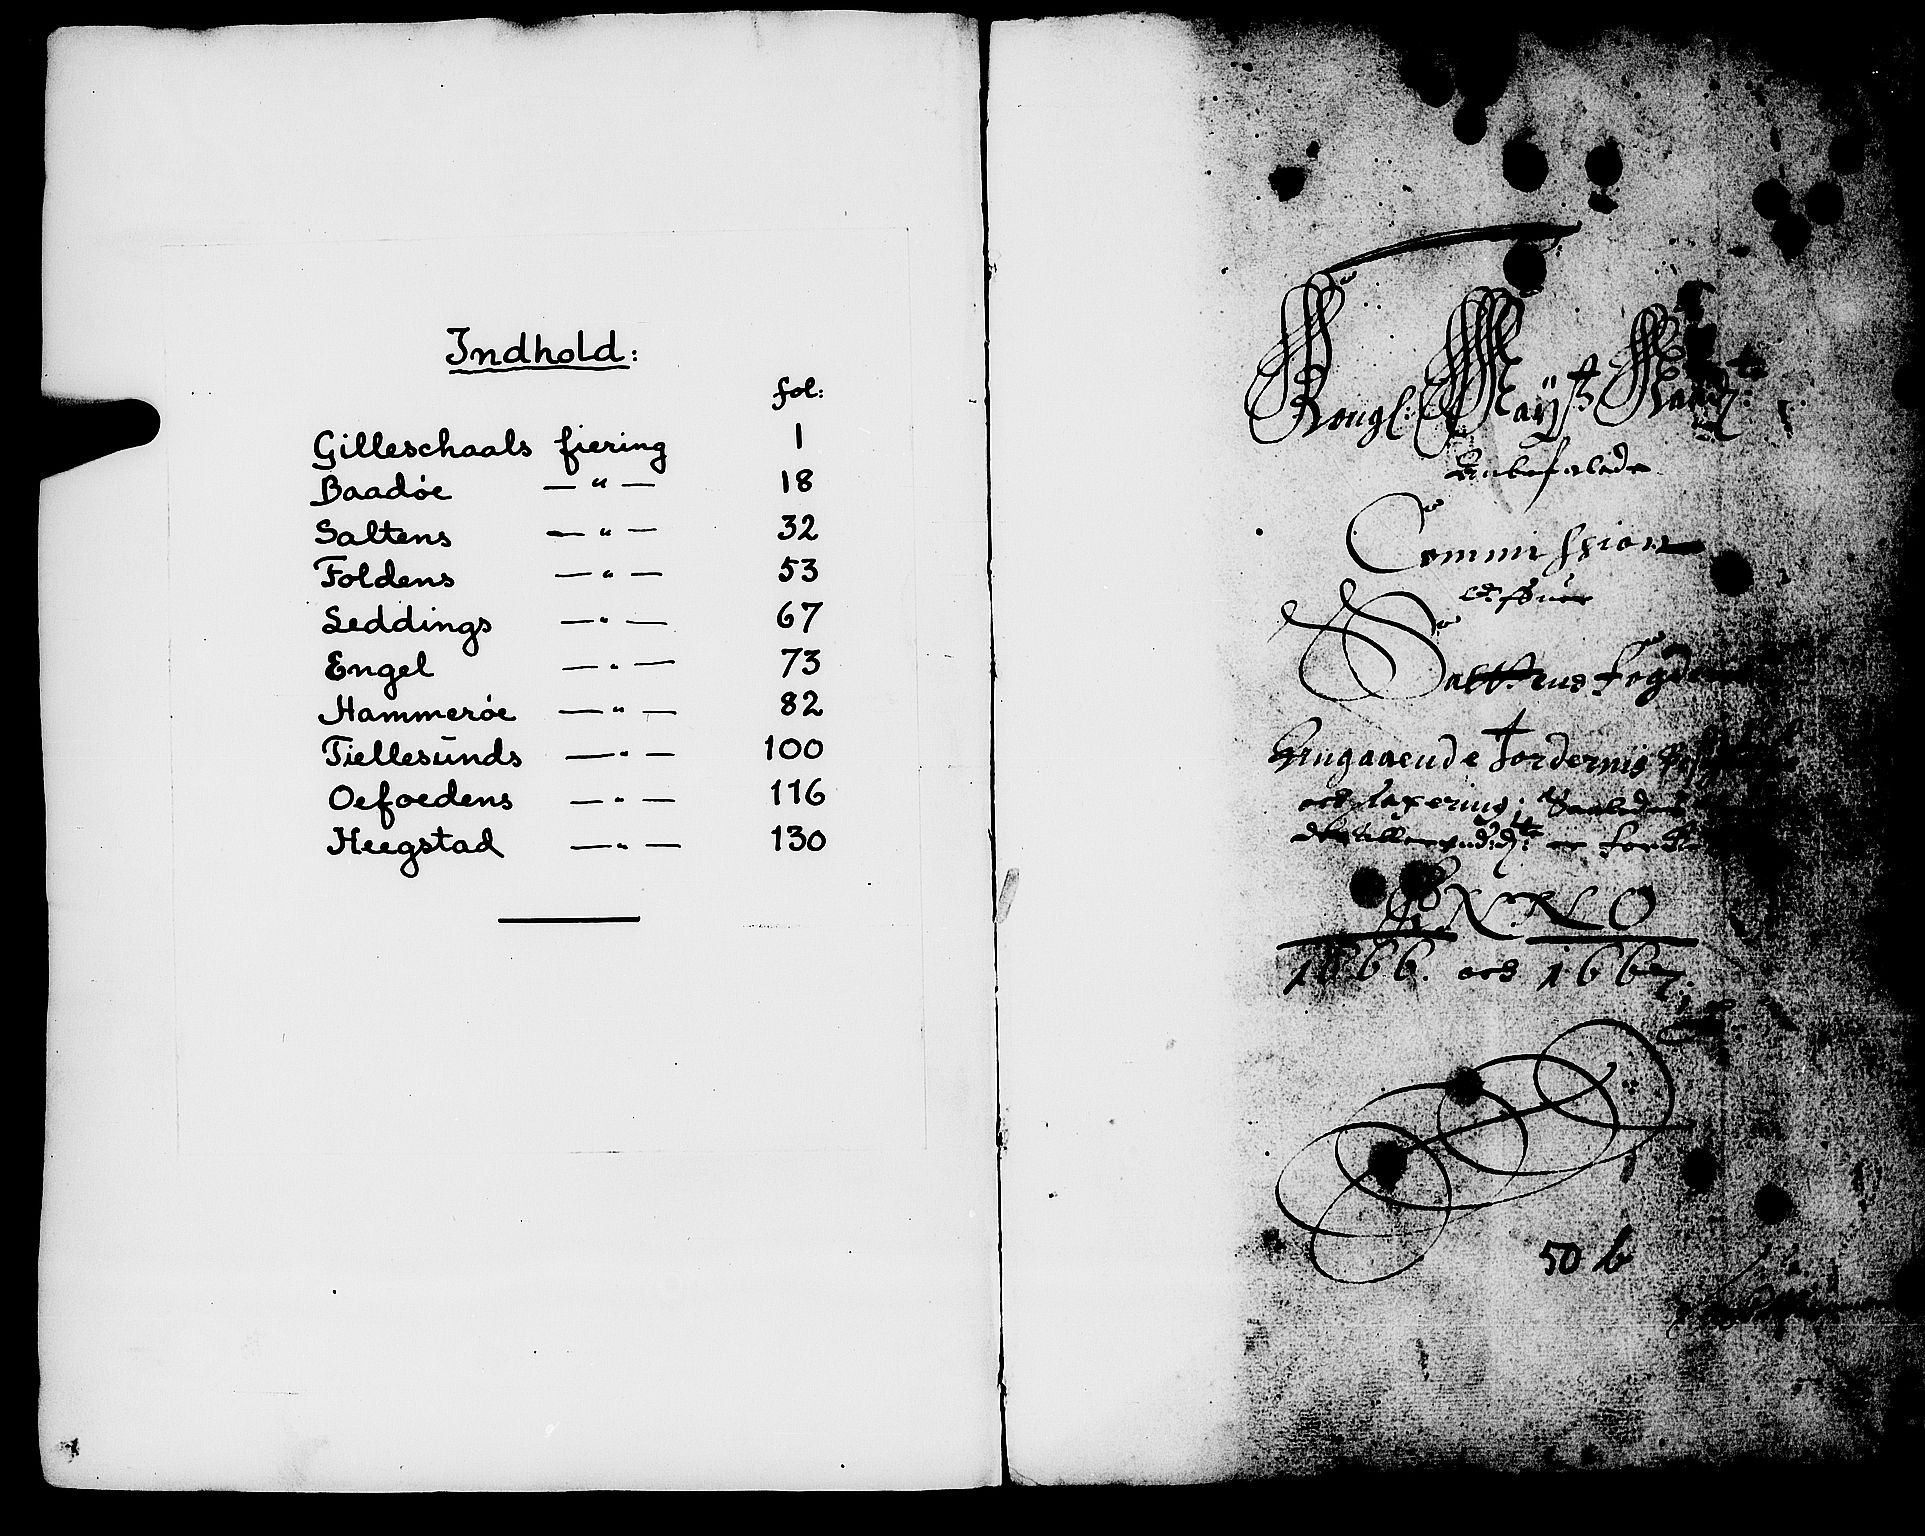 Indhold:
fol:
Gilleschaals fiering 1
Baadøe — " — 18
Saltens — " — 32
Foldens — " — 53
Leddings — " — 67
Engel — " — 73
Hammerøe — " — 82
Tiellesūnds — " — 100
Oefoedens — " — 116
Heegstad — " — 130
Kongl: Maÿtz Naad:
Anbefalede
Commission
Offuer
Saltens fogderi
Angaaende Jordernis
och Taxering; Saaledes
ANNO
1666. och 1667.
50 b